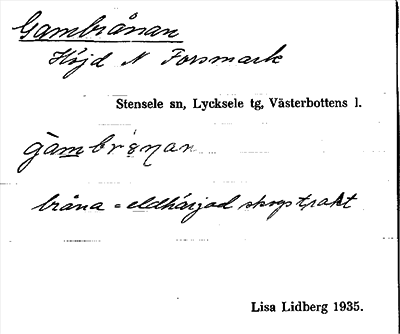 Gambrånan
Höjd N Forsmark
Stensele sn, Lycksele tg, Västerbottens l.
gambrånan
bråna = eldhärjad skogstrakt
Lisa Lidberg 1935.